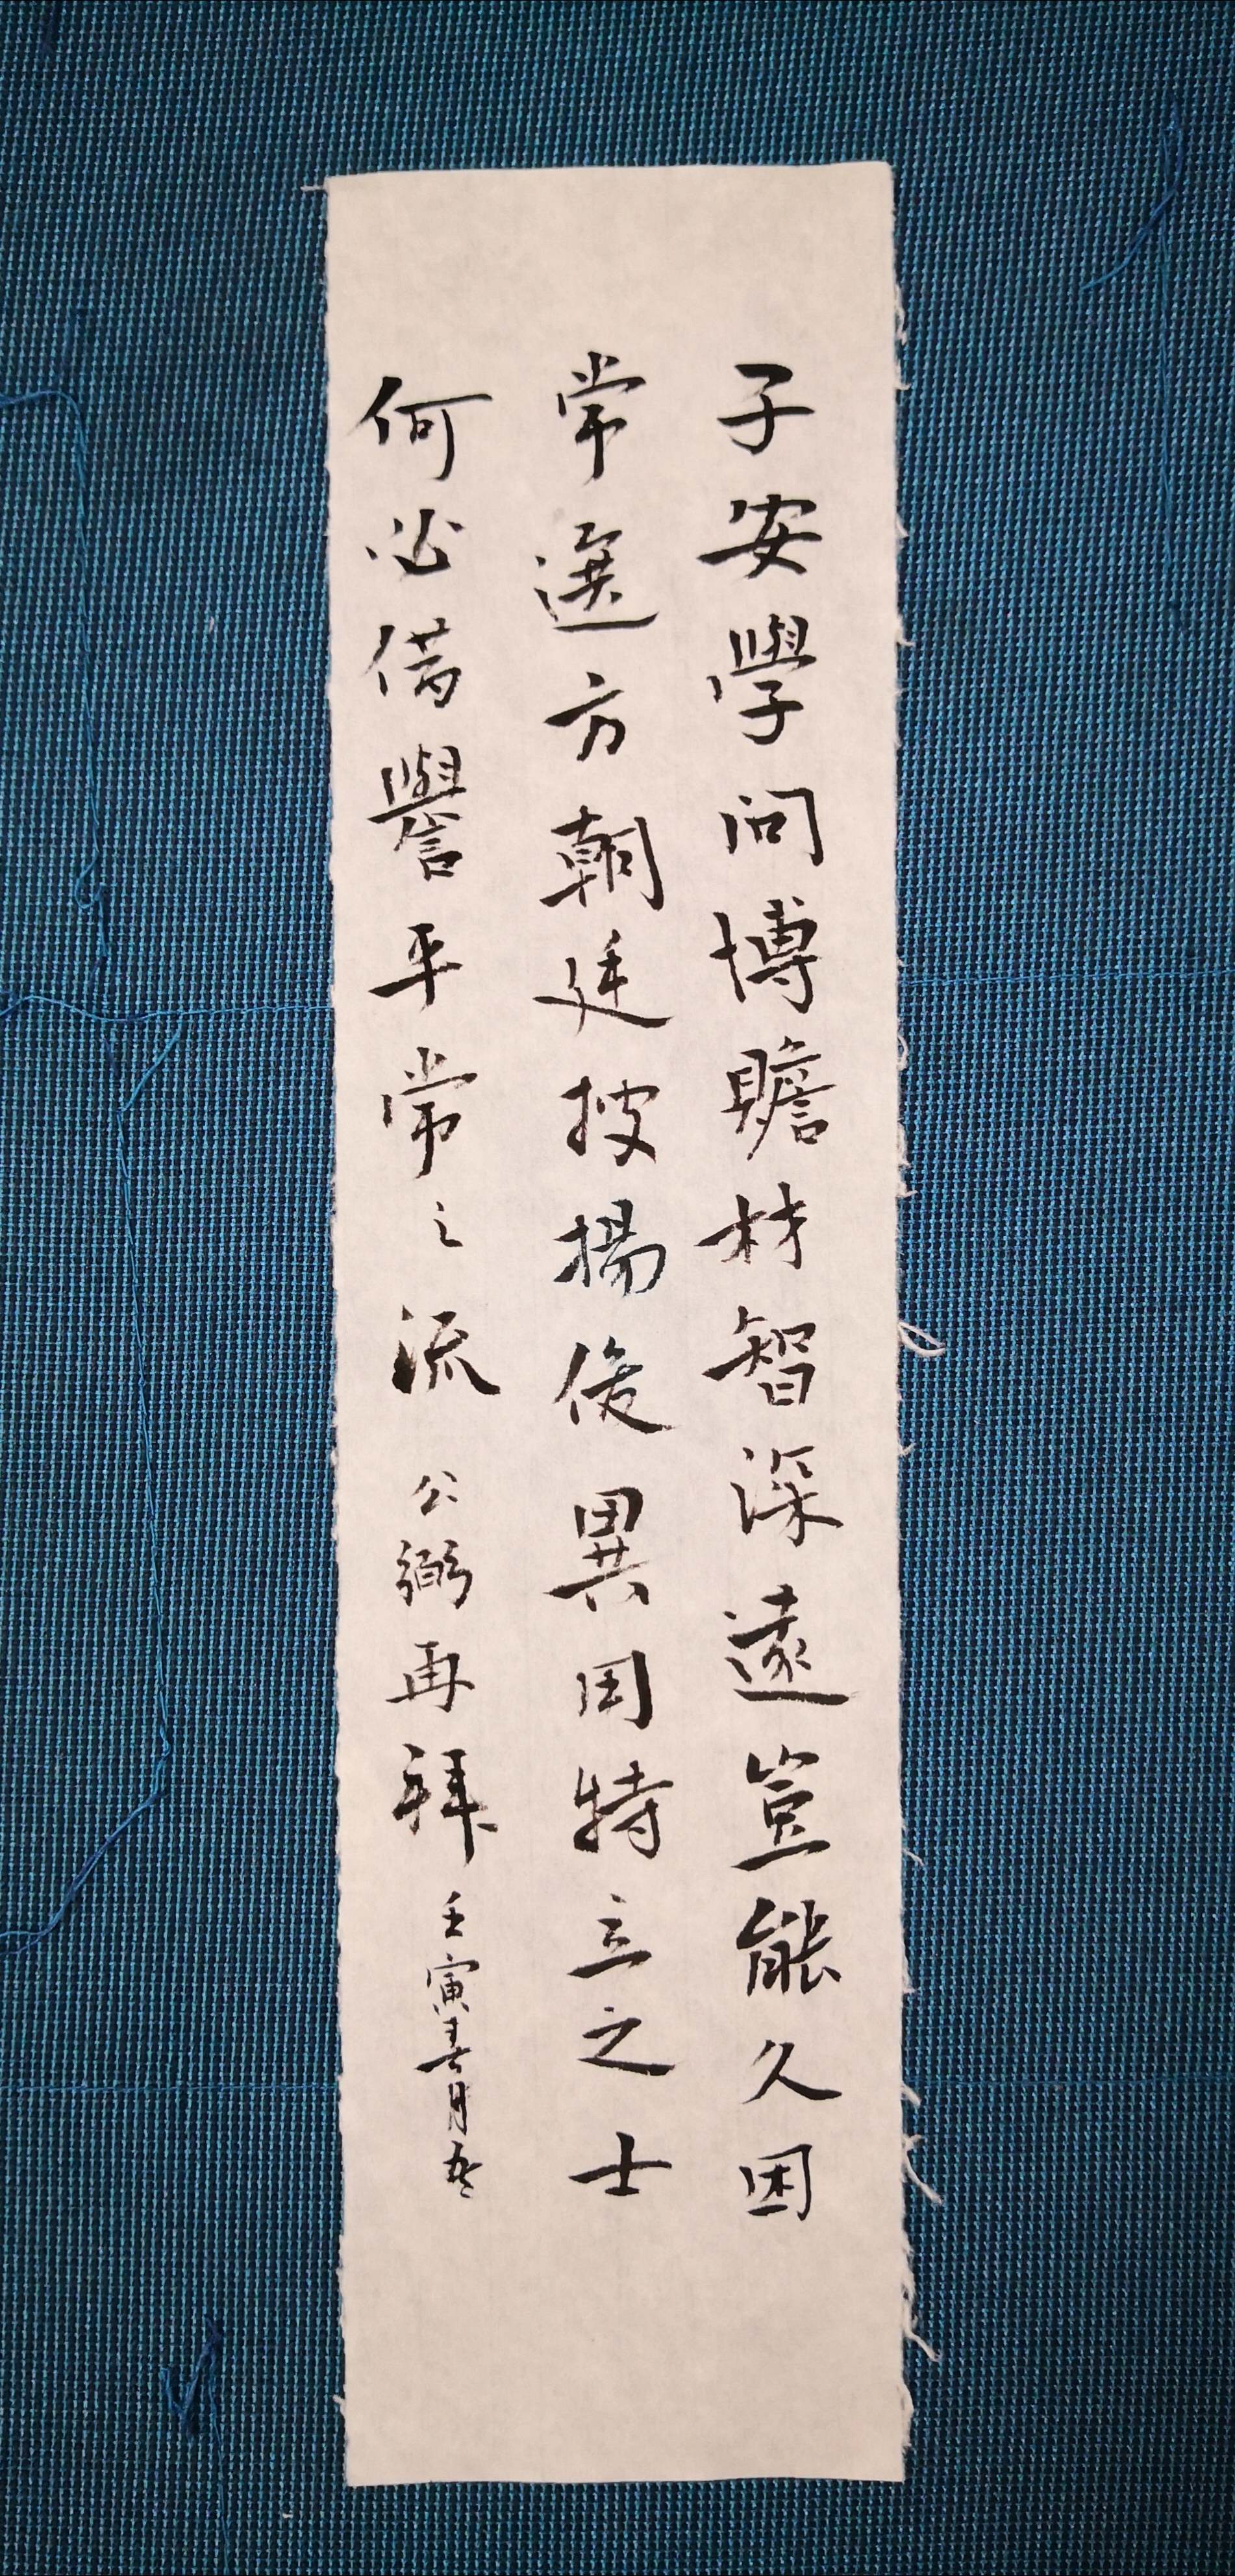 子安學問博贍材智深遠豈能久困
常選方朝廷披揚俊異用特立之士
何必借譽平常之流 公弼再拜 壬寅春月